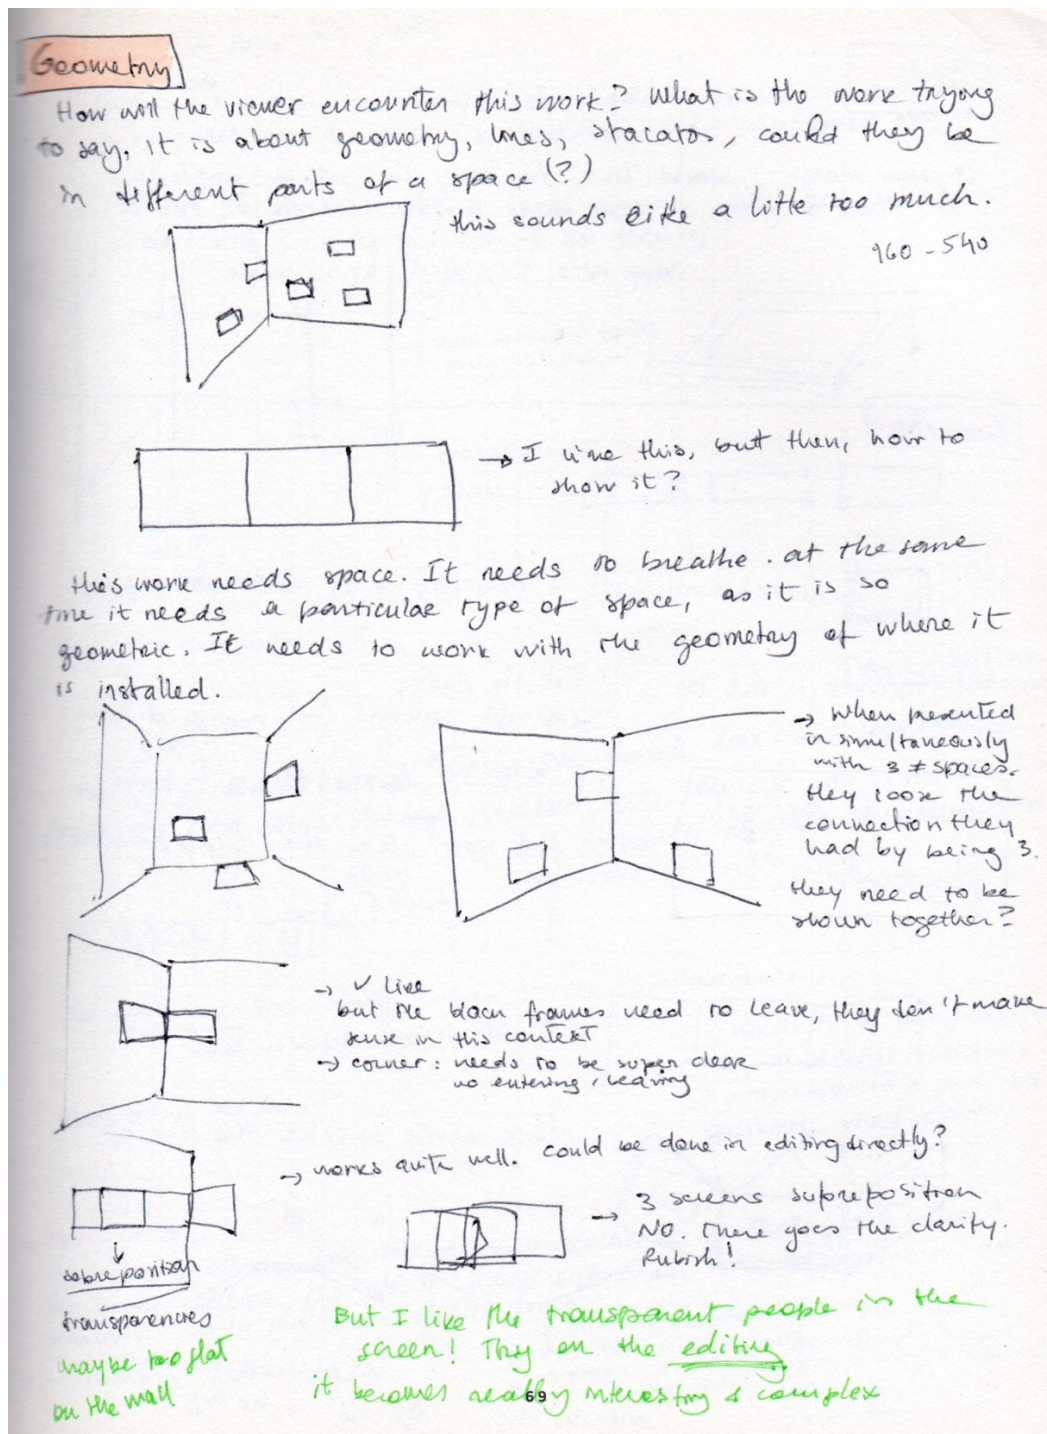 Geometry
How will the viewer encounter this work? What is the work trying
to say, it is about geometry, lines, stacatos, could they be
in different parts of a space (?)
this sounds like a little too much.
960 - 540
→ I like this, but then, how to
show it?
this work needs space. It needs to breathe. at the same
time it needs a particular type of space, as it is so
geometric. It needs to work with the geometry of where it
is installed.
→ When presented
in simultaneously
with 3 ≠ spaces.
they loose the
connection they
had by being 3.
they need to be
shown together?
→ ✓ like
but the black frames need to leave, they don't make
sense in this context
→ corner: needs to be super clear
no entering, leaving
→ works quite well. could be done in editing directly?
→ 3 screens supreposition
NO. There goes the clarity.
Rubish!
sobreposition
transparencies
maybe too flat
on the wall
But I like the transparent people in the
screen! Try on the editing
it becomes really interesting & complex
69